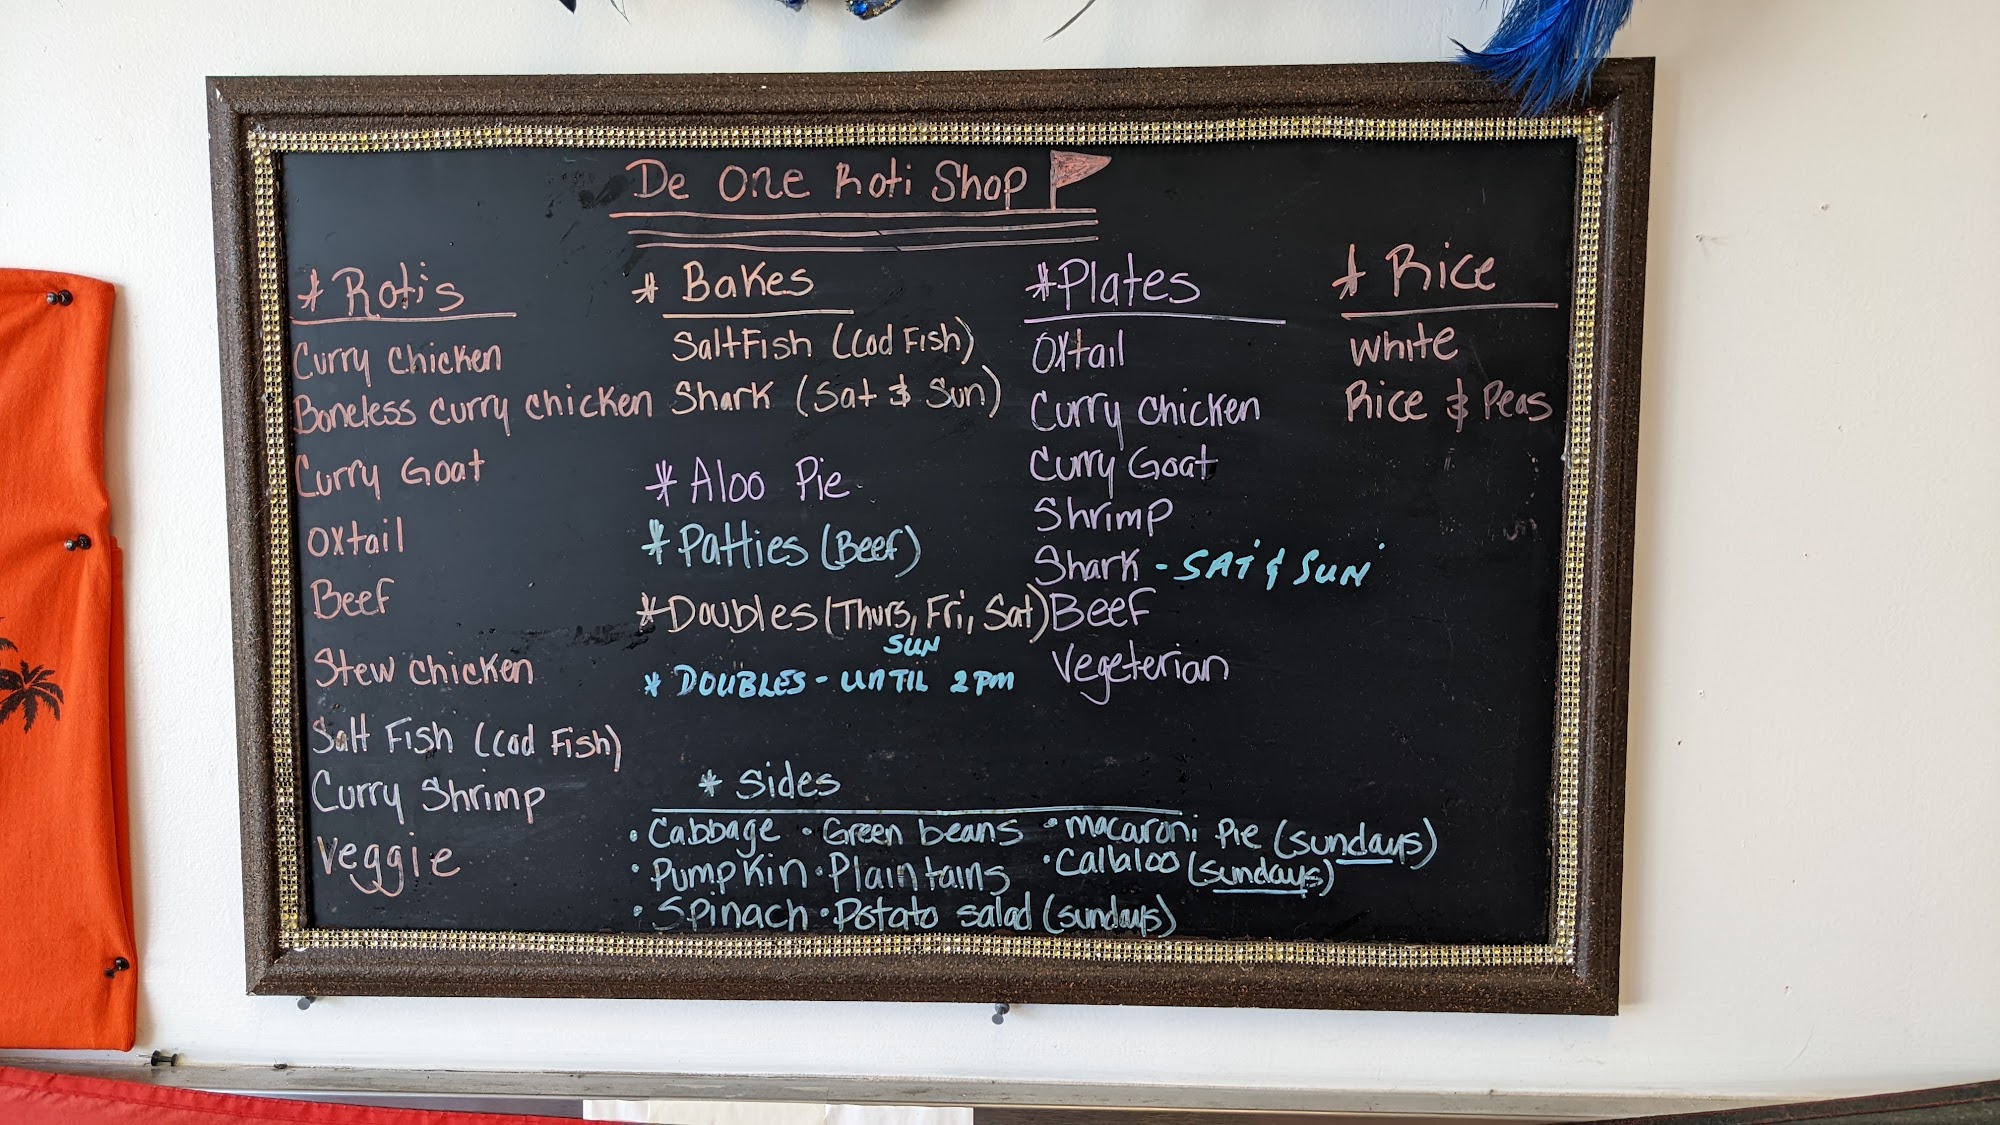 De One Roti Shop
* Rotis
Curry Chicken
Boneless Curry Chicken
Curry Goat
Oxtail
Beef
Stew Chicken
Salt Fish (Cod Fish)
Curry Shrimp
Veggie
* Bakes
SaltFish (Cod Fish)
Shark (Sat & Sun)
* Aloo Pie
* Patties (Beef)
* Doubles (Thurs, Fri, Sat)
SUN
* DOUBLES - UNTIL 2 PM
* Plates
Oxtail
Curry Chicken
Curry Goat
Shrimp
Shark - SAT & SUN
Beef
Vegeterian
* Rice
White
Rice & Peas
* Sides
• Cabbage • Green beans • Macaroni Pie (Sundays)
• Pumpkin • Plaintains • Callaloo (Sundays)
• Spinach • Potato salad (Sundays)